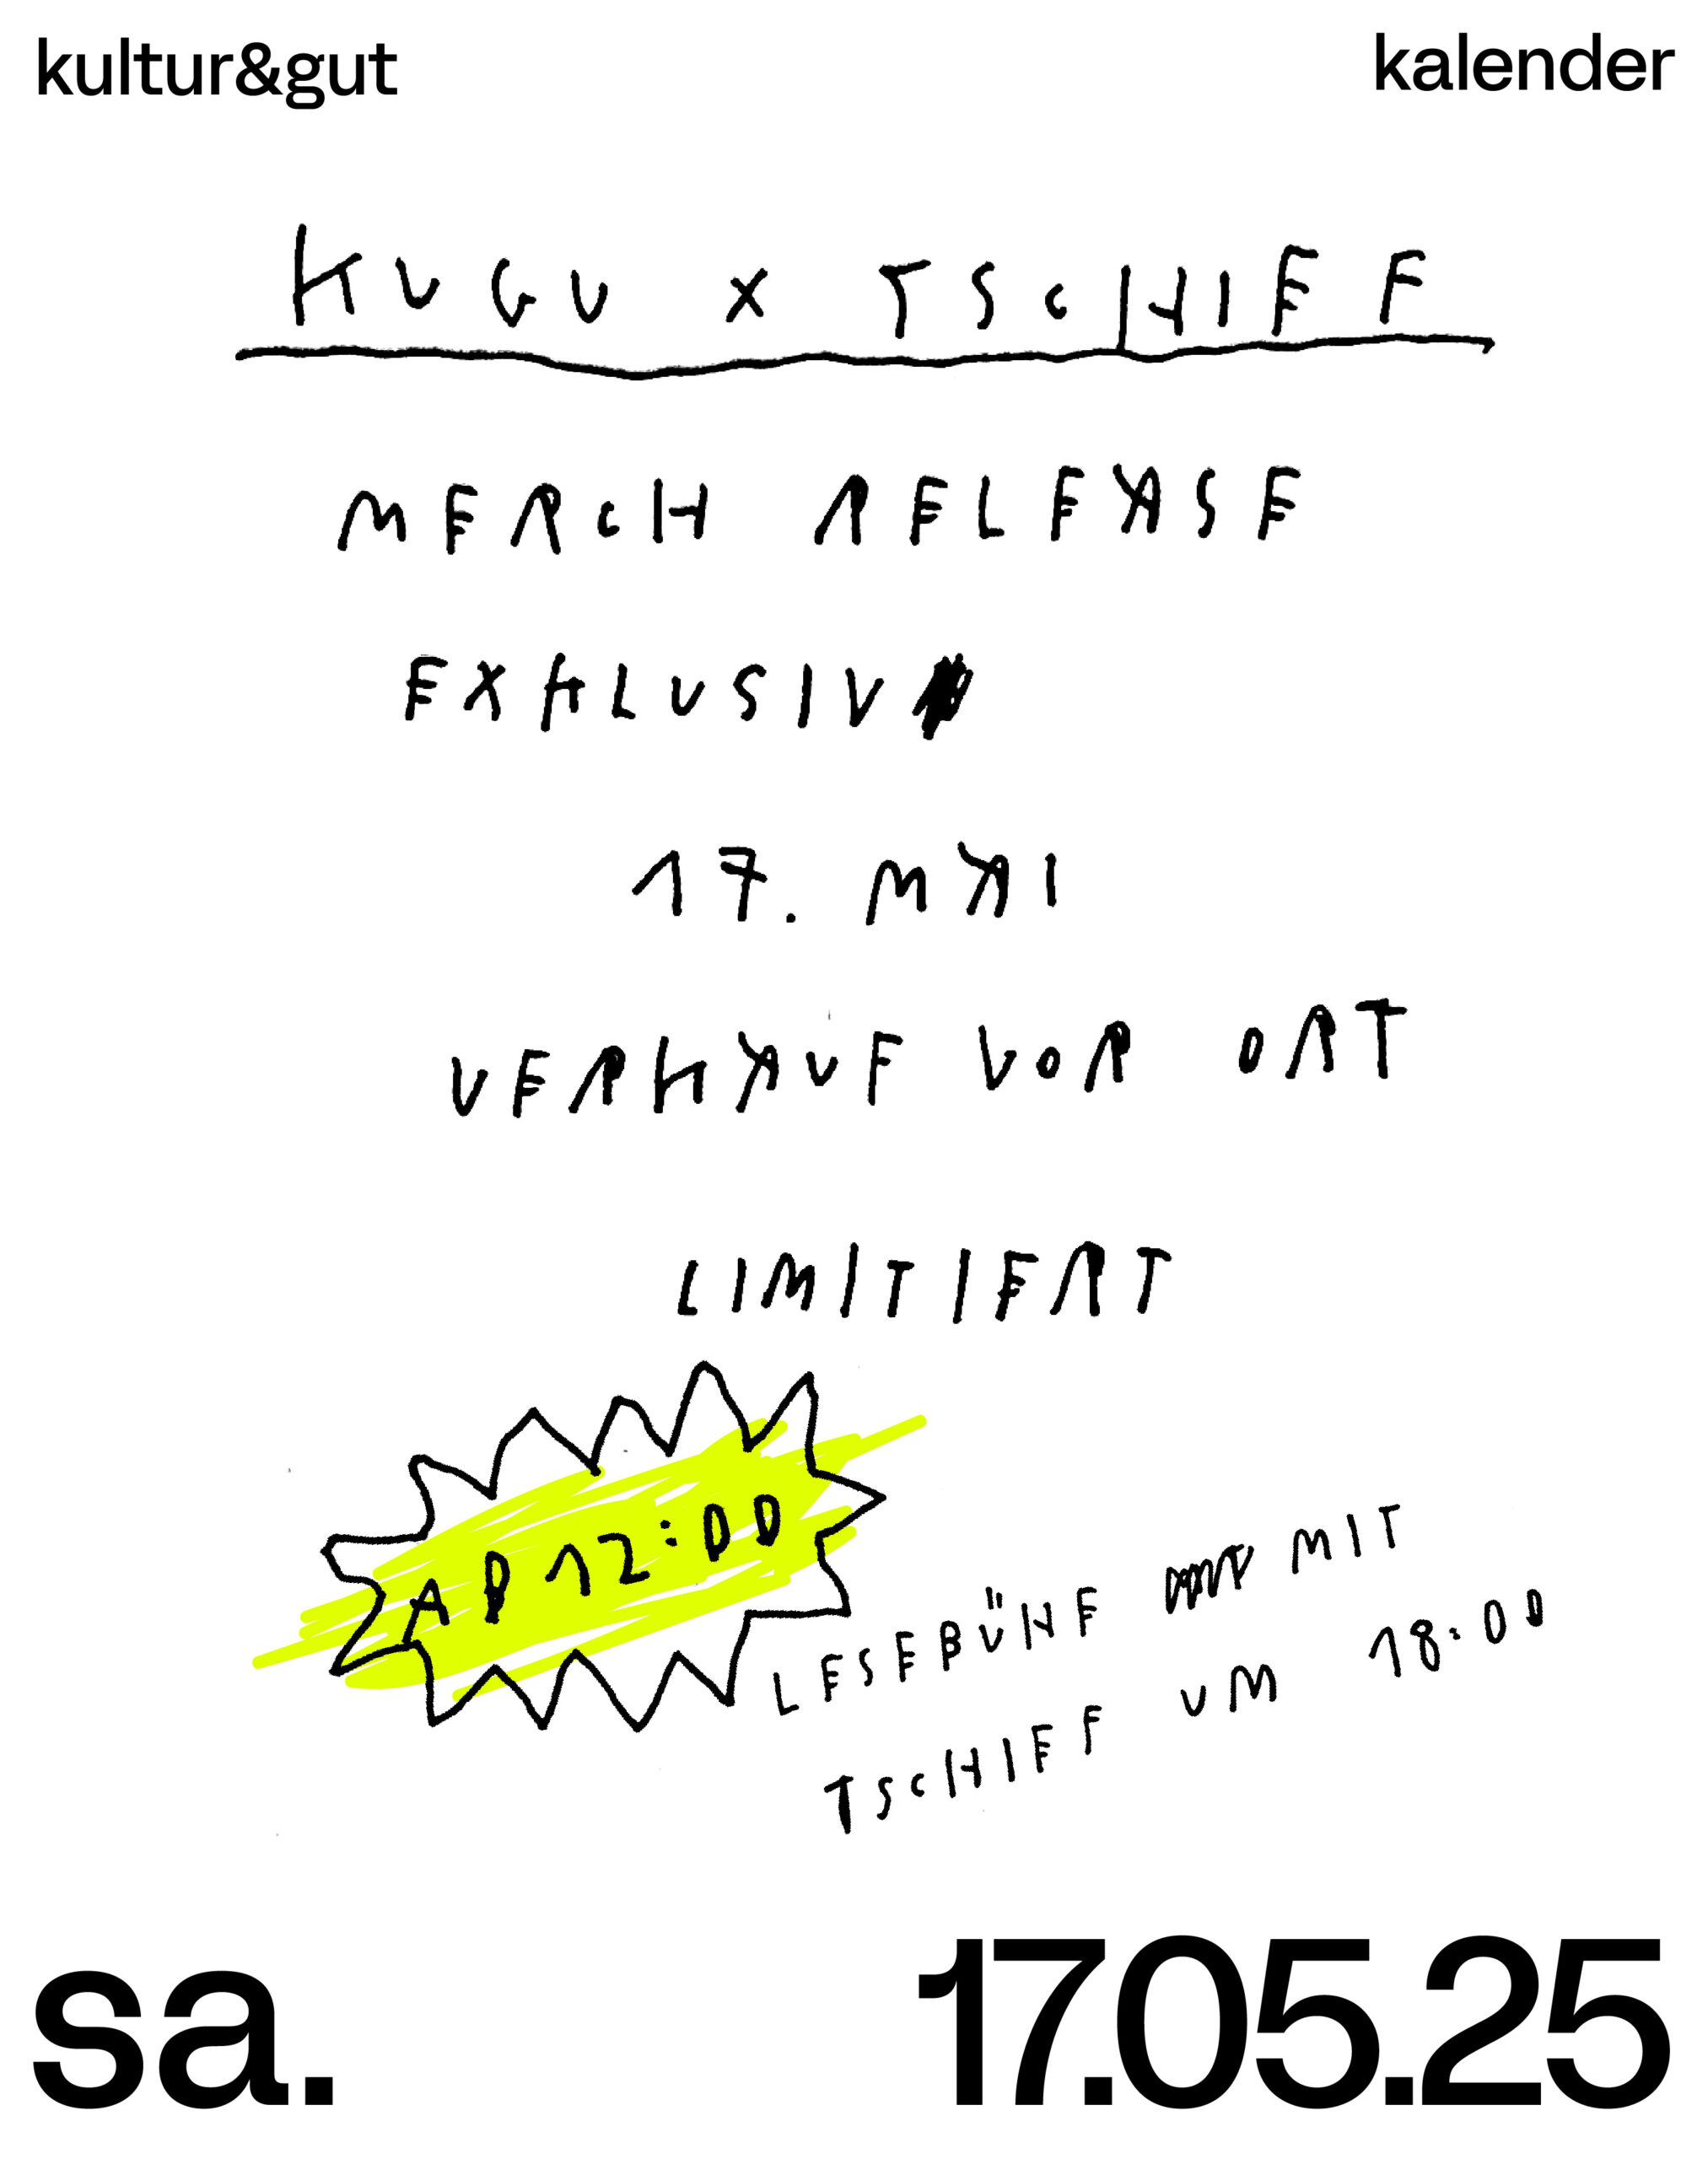 kultur&gut
kalender
KUGU X TSCHIEF F
MERCH RELEASE
EXKLUSIV
17. MAI
VERKAUF VOR ORT
LIMITIERT
AB 12:00
LESEBÜNE MIT
TSCHIEFF UM 18:00
sa.
17.05.25